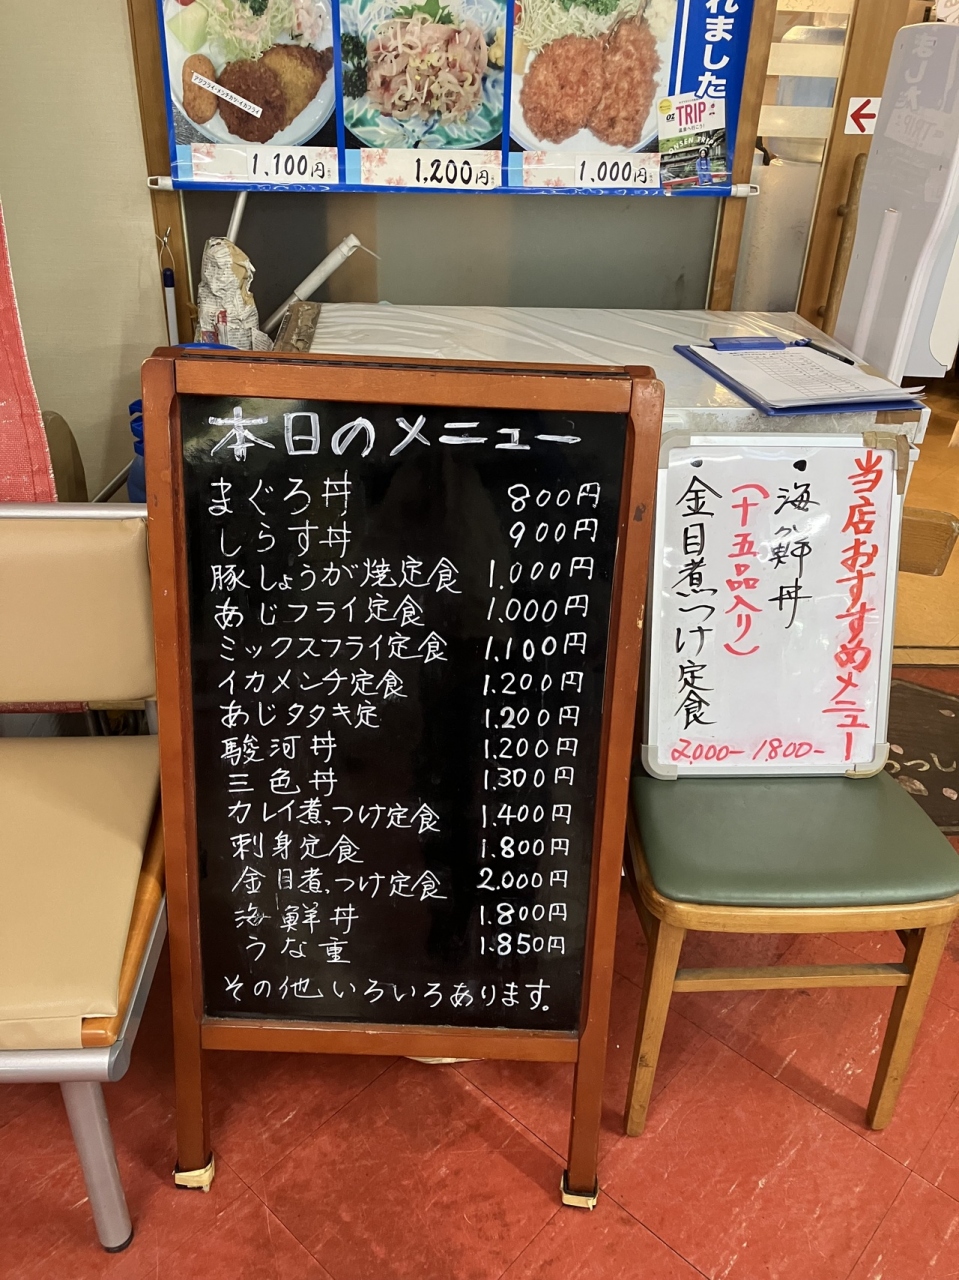 れました
アジフライ・メンチカツ・イカフライ
1,100円
1,200円
1,000円
OZ TRIP
温泉へ行こう!
ONSEN TRIP
本日のメニュー
まぐろ丼 800円
しらす丼 900円
豚しょうが焼定食 1.000円
あじフライ定食 1.000円
ミックスフライ定食 1.100円
イカメンチ定食 1.200円
あじタタキ定 1.200円
駿河丼 1.200円
三色丼 1.300円
カレイ煮つけ定食 1.400円
刺身定食 1.800円
金目煮つけ定食 2.000円
海鮮丼 1.800円
うな重 1.850円
その他いろいろあります。
当店おすすめメニュー
・海鮮丼
(十五品入り)
1800-
・金目煮つけ定食
2000-